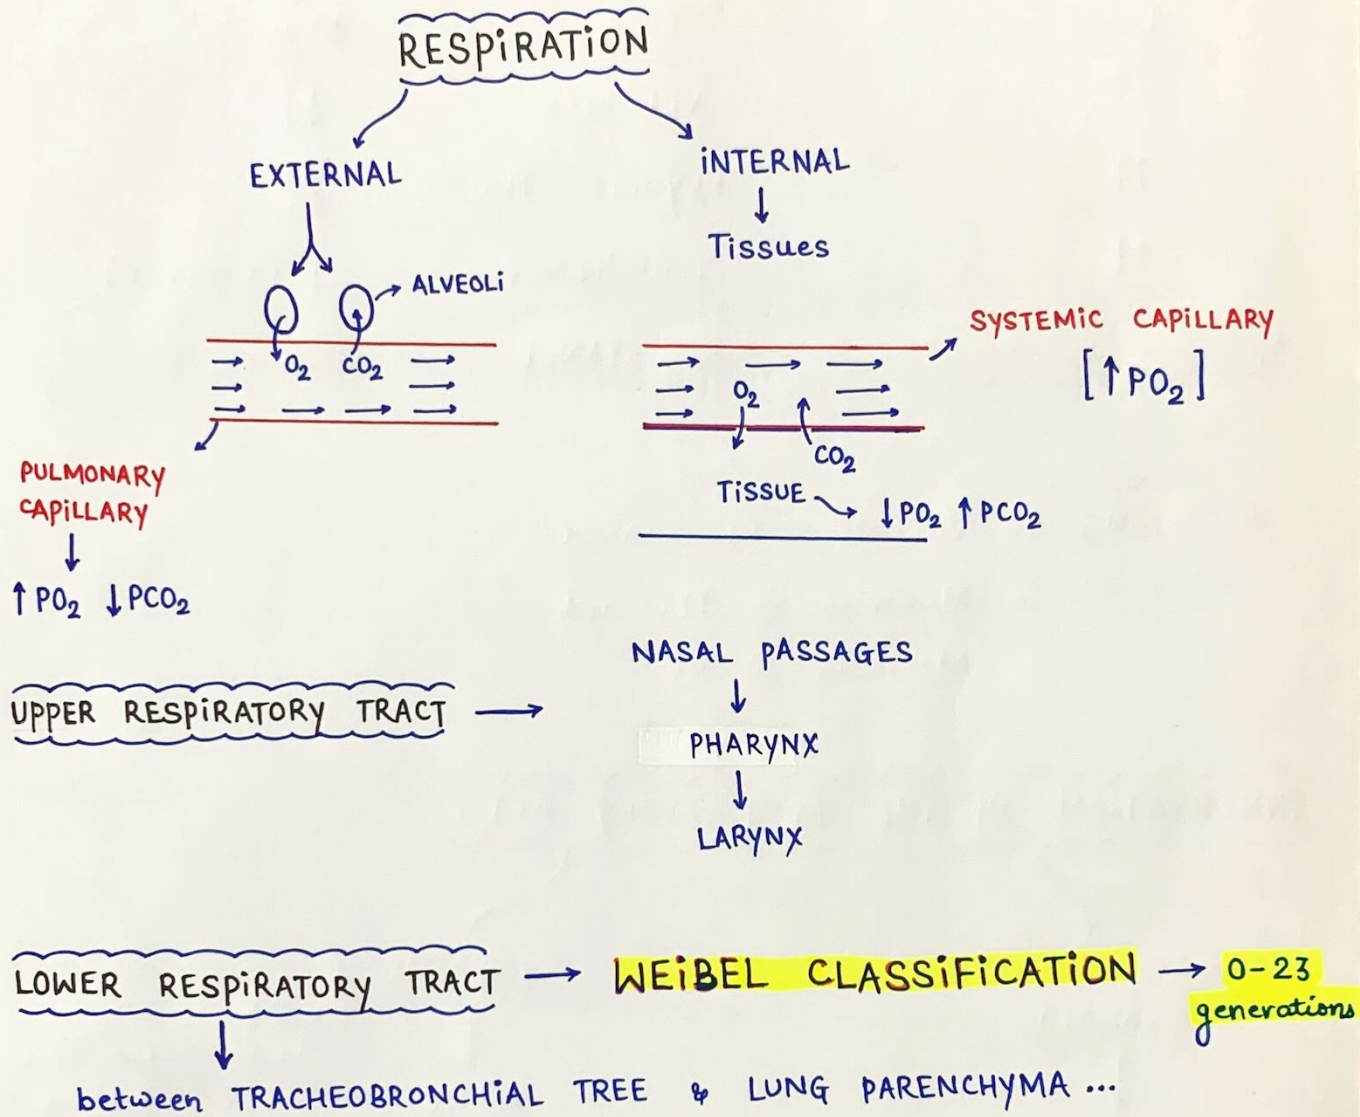 RESPiRATiON
EXTERNAL
iNTERNAL
Tissues
ALVEOLi
O2 CO2
PULMONARY
CAPiLLARY
↑ PO2 ↓ PCO2
SYSTEMiC CAPiLLARY
[↑ PO2]
O2
CO2
TiSSUE → ↓PO2 ↑ PCO2
UPPER RESPiRATORY TRACT →
NASAL PASSAGES
↓
PHARYNX
↓
LARYNX
LOWER RESPiRATORY TRACT → WEiBEL CLASSiFiCATiON → 0-23
generations
between TRACHEOBRONCHiAL TREE & LUNG PARENCHYMA ...